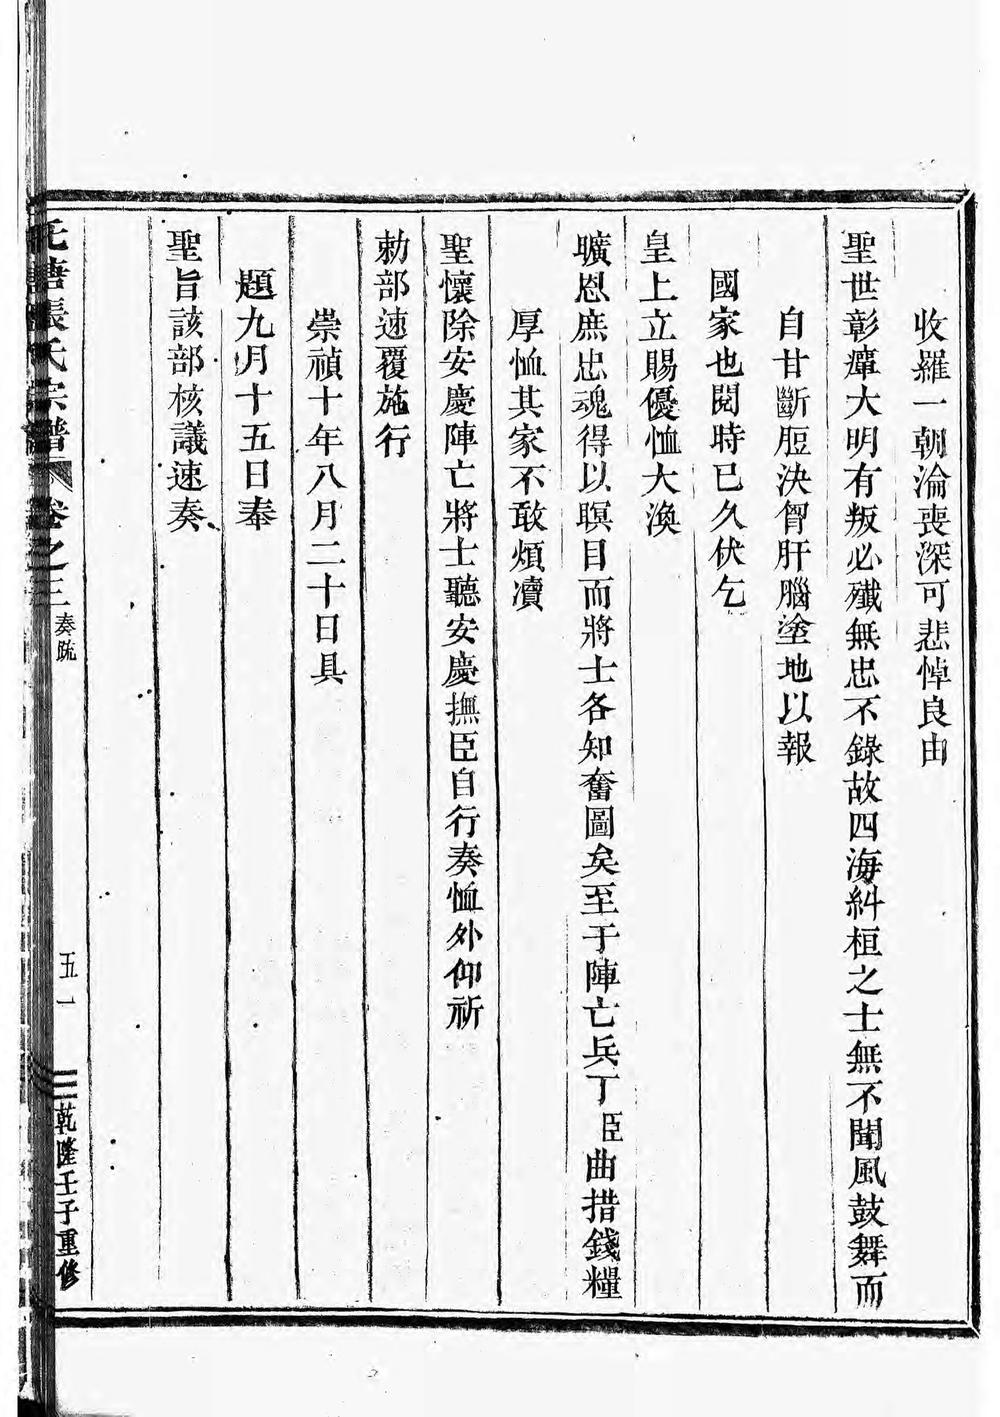 收羅一朝淪喪深可悲悼良由
聖世彰癉大明有叛必殲無忠不錄故四海糾桓之士無不聞風鼓舞而
自甘斷脰決胷肝腦塗地以報
國家也閱時已久伏乞
皇上立賜優恤大渙
曠恩庶忠魂得以瞑目而將士各知奮圖矣至于陣亡兵丁臣曲措錢糧
厚恤其家不敢煩凟
聖懷除安慶陣亡將士聽安慶撫臣自行奏恤外仰祈
勅部速覆施行
崇禎十年八月二十日具
題九月十五日奉
聖旨該部核議速奏
張氏宗譜 卷之三 奏疏 五一 乾隆壬子重修